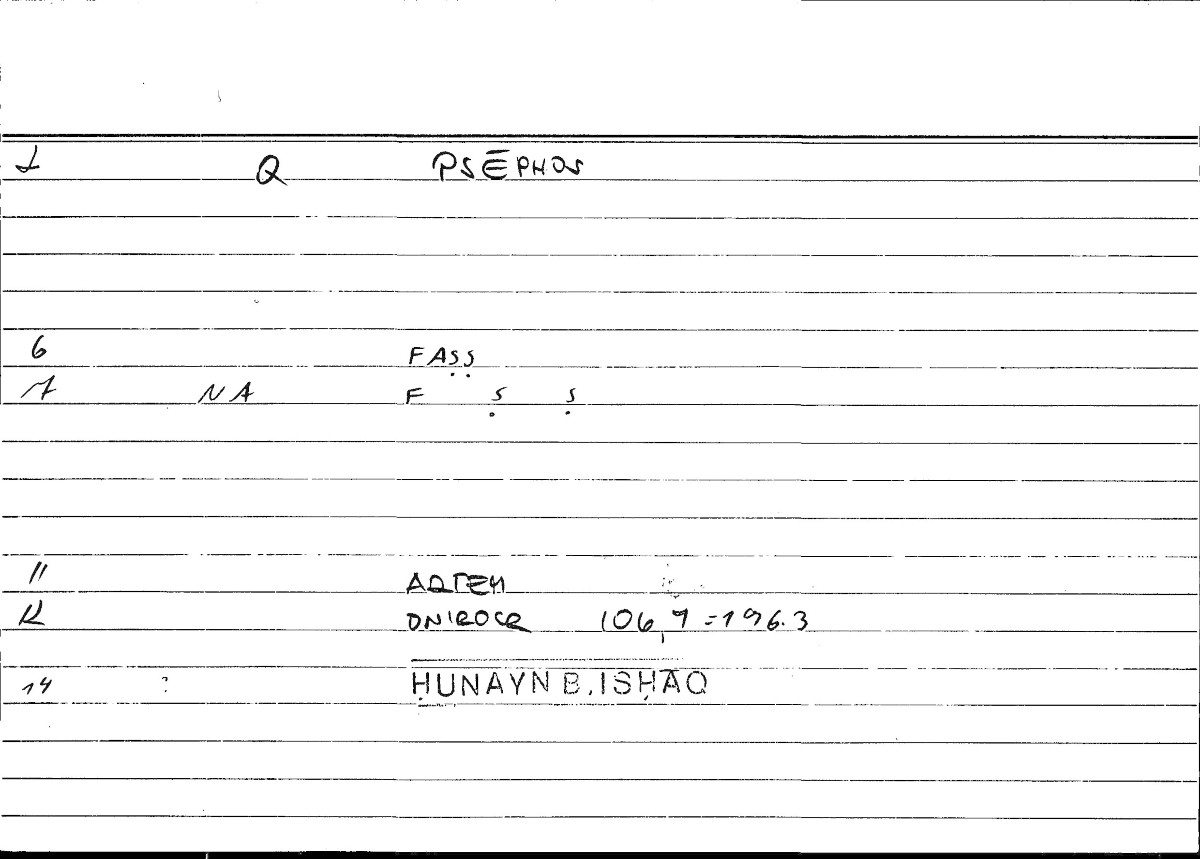 1 Q PSĒPHOS
6 FAṢṢ
7 NA F Ṣ Ṣ
11 ARTEM
12 ONIROCR 106,7=196.3
14 : ḤUNAYN B. ISḤĀQ